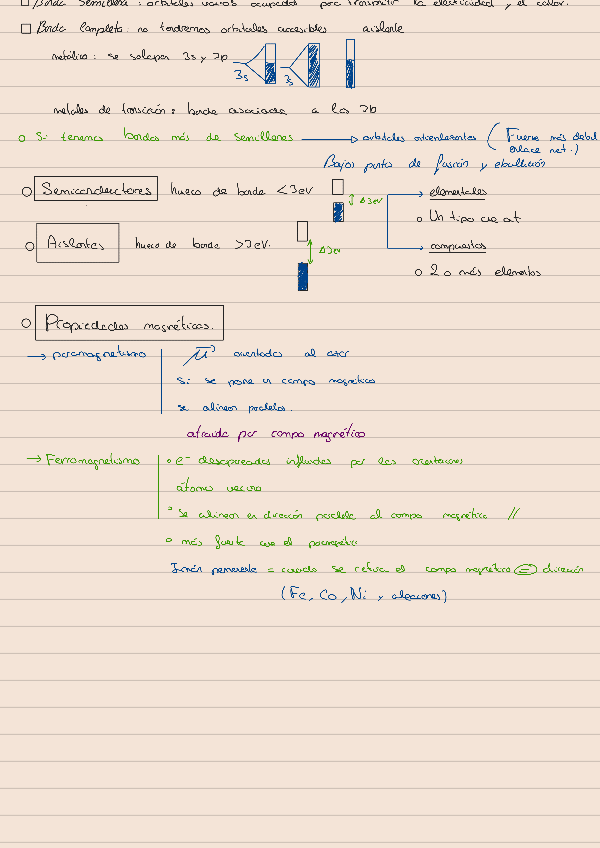 Banda Semillena: orbitales vacios ocupados para transmitir la electricidad y el calor.
Banda Completa: no tendremos orbitales accesibles aislante
metálico: se solapan 3s y 3p
3s 3s
metales de transición: banda asociada a los 3p
Si tenemos bandas más de semillenas orbitales antienlazantes (Fuerza más debil
enlace met.)
Bajos puntos de fusión y ebullición
Semiconductores hueco de banda < 3eV Δ3eV elementales
Un tipo de at
Aislantes hueco de banda >3eV. Δ3eV compuestos
2 o más elementos
Propiedades magnéticas.
→ paramagnetismo μ orientados al azar
Si se pone en campo magnético
se alinean paralelos.
atraido por campo magnético
→ Ferromagnetismo e⁻ desapareados influidos por las orientaciones
átomos vecinos
se alinean en dirección paralela al campo magnético //
más fuerte que el paramagnético
Imán permanente = cuando se retira el campo magnético = dirección
(Fe, Co, Ni y aleaciones)